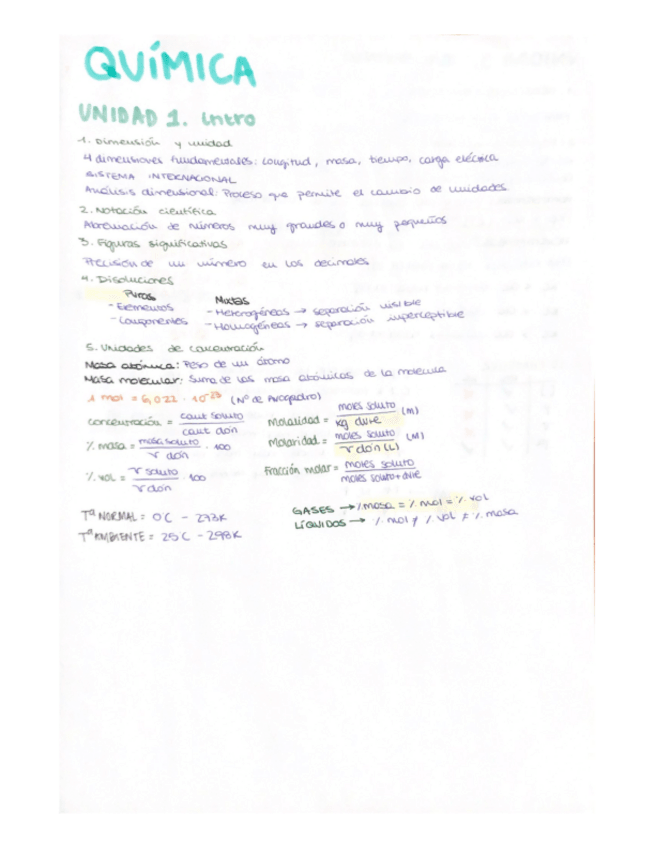 QUÍMICA
UNIDAD 1. Intro
1. Dimensión y unidad
4 dimensiones fundamentales: longitud, masa, tiempo, carga eléctrica
SISTEMA INTERNACIONAL
Análisis dimensional: Proceso que permite el cambio de unidades
2. Notación científica
Abreviación de números muy grandes o muy pequeños
3. Figuras significativas
Precisión de un número en los decimales
4. Disoluciones
Puros Mixtas
- Elementos - Heterogéneas → separación visible
- Componentes - Homogéneas → separación imperceptible
5. Unidades de concentración
Masa atómica: Peso de un átomo
Masa molecular: Suma de las masa atómicas de la molécula
1 mol = 6,022 · 10²³ (Nº de Avogadro)
concentración = cant soluto / cant dón
Molalidad = moles soluto / kg dvte (m)
% masa = masa soluto / v dón · 100
Molaridad = moles soluto / v dón (L) (M)
% vol = v soluto / v dón · 100
Fracción molar = moles soluto / moles soluto + dvte
Tª NORMAL = 0 C - 273K
GASES → % masa = % mol = % vol
Tª AMBIENTE = 25 C - 298K
LÍQUIDOS → % mol ≠ % vol ≠ % masa